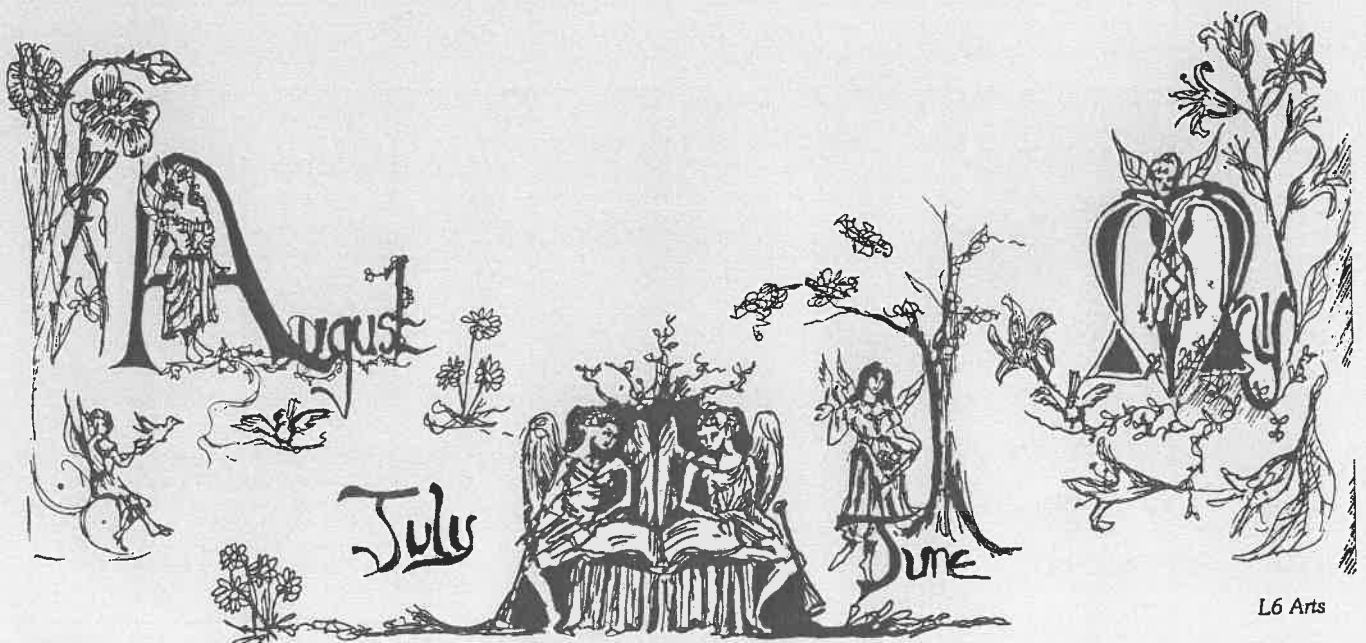 August
July
June
May
L6 Arts